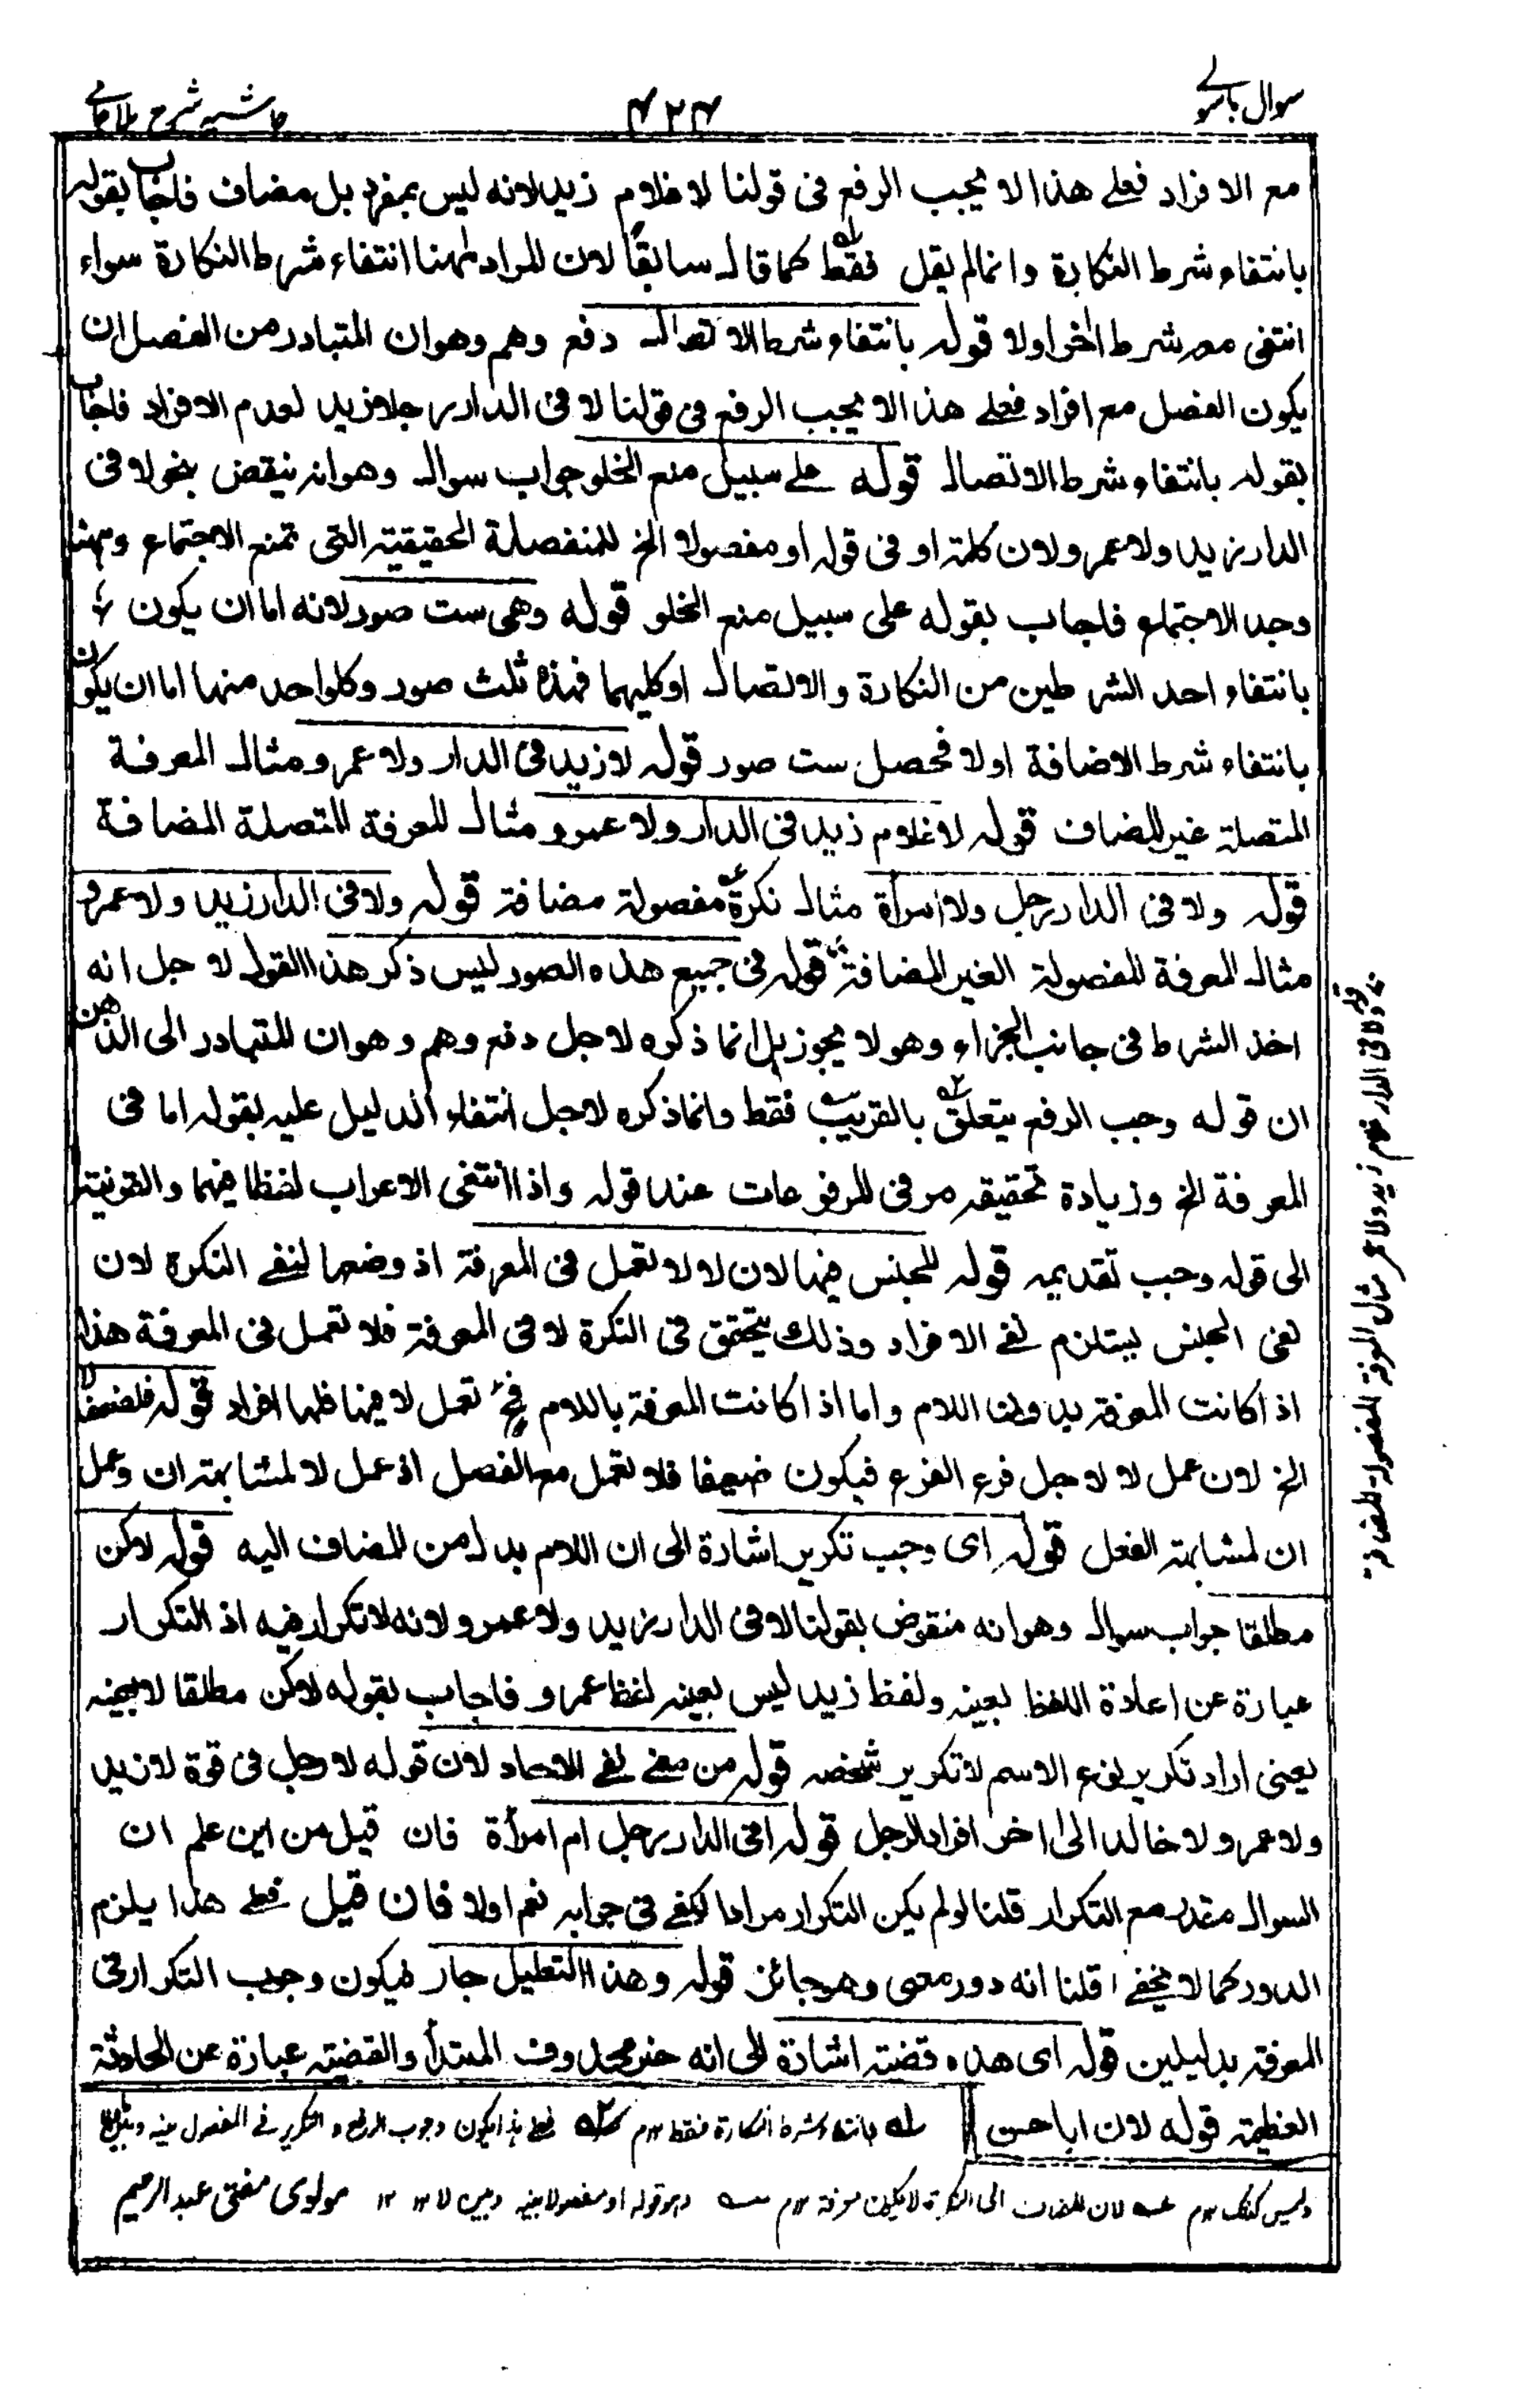 سوال باسولے
۴۲۴
حاشیہ شرح ملا جامے
مع الافراد فعلے هذا لا يجب الرفع فى قولنا لا غلام زيد لانه ليس بمفرد بل مضاف فاجاب بقوله
بانتفاء شرط النكارة وانما لم يقل فقط كما قال سابقا لان المراد ههنا انتفاء شرط النكارة سواء
انتفى معه شرط اخر اولا قوله بانتفاء شرط الاتصال دفع وهم وهو ان المتبادر من الفصل ان
يكون الفصل مع افراد فعلے هذا لا يجب الرفع فى قولنا لا فى الدار رجلا زيد لعدم الافراد فاجاب
بقوله بانتفاء شرط الاتصال قوله علے سبيل منع الخلو جواب سوال وهو انه ينقض بنحو لا فى
الدار زيد ولا عمرو لان كلمة او فى قوله او مفصولا الخ للمنفصلة الحقيقية التى تمنع الاجتماع وههنا
وجد الاجتماع فاجاب بقوله على سبيل منع الخلو قوله وهى ست صور لانه اما ان يكون
بانتفاء احد الشرطين من النكارة والاتصال او كليهما فهذه ثلث صور وكلواحد منها اما ان يكون
بانتفاء شرط الاضافة اولا فحصل ست صور قوله لا زيد فى الدار ولا عمرو مثال المعرفة
المتصلة غير المضاف قوله لا غلام زيد فى الدار ولا عمرو مثال المعرفة المتصلة المضافة
قوله ولا فى الدار رجل ولا امرأة مثال نكرة مفصولة مضافة قوله ولا فى الدار زيد ولا عمرو
مثال المعرفة المفصولة الغير المضافة قوله فى جميع هذه الصور ليس ذكر هذا القول لا جل انه
اخذ الشرط فى جانب الجزاء وهو لا يجوز بل انما ذكره لاجل دفع وهم وهو ان المتبادر الى الذهن
ان قوله وجب الرفع يتعلق بالقريب فقط وانما ذكره لاجل انتفاء الدليل عليه بقوله اما فى
المعرفة الخ وزيادة تحقيقه مر فى المرفوعات عند قوله واذا انتفى الاعراب لفظا فيهما والقرينة
الى قوله وجب تقديمه قوله للجنس فيها لان لا لا تعمل فى المعرفة اذ وضعها لنفے النكرة لان
نفى الجنس يستلزم نفے الافراد وذلك يتحقق فى النكرة لا فى المعرفة فلا تعمل فى المعرفة هذا
اذا كانت المعرفة بدون اللام واما اذا كانت المعرفة باللام فح تعمل لا فيها فلها افراد قوله فلضعف لا
الخ لان عمل لا لاجل فرع الفرع فيكون ضعيفا فلا تعمل مع الفصل اذ عمل لا لمشابهة ان وعمل
ان لمشابهة الفعل قوله اى وجب تكرير اشارة الى ان اللام بدل من المضاف اليه قوله لاكن
مطلقا جواب سوال وهو انه منقوض بقولنا لا فى الدار زيد ولا عمرو لانه لا تكرار فيه اذ التكرار
عبارة عن اعادة اللفظ بعينه ولفظ زيد ليس بعينه لفظ عمرو فاجاب بقوله لاكن مطلقا لا بعينه
يعنى اراد تكرير نوع الاسم لا تكرير شخصه قوله من معنے نفے الاحاد لان قوله لا رجل فى قوة لا زيد
ولا عمرو لا خالد الى اخر افراد الرجل قوله افى الدار رجل ام امرأة فان قيل من اين علم ان
السوال مقدر مع التكرار قلنا لو لم يكن التكرار مرادا لكفے فى جوابه نعم اولا فان قيل فعلے هذا يلزم
الدور كما لا يخفے قلنا انه دور معى وهو جائز قوله وهذا التعليل جار فيكون وجوب التكرار فى
المعرفة بدليلين قوله اى هذه قضية اشارة الى انه خبر محذوف المبتدأ والقضية عبارة عن الحادثة
العظيمة قوله لان ابا حسن
له بانتفاء شرط النكارة فقط ۱۲م ٢ فعلے هذا يكون وجوب الرفع والتكرير فے المفصول بينه وبين لا
وليس كذلك ۱۲م عه لان المضاف الى النكرة لا يكون معرفة ۱۲م سه وهو قوله او مفصولا بينه وبين لا ۱۲ ۱۲ مولوى مفتى عبد الرحيم
قوله ولا فى الدار غلام زيد ولا عمرو مثال المعرفة المفصولة المضافة